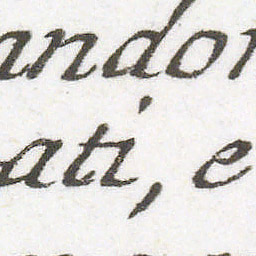 andor
ati, e